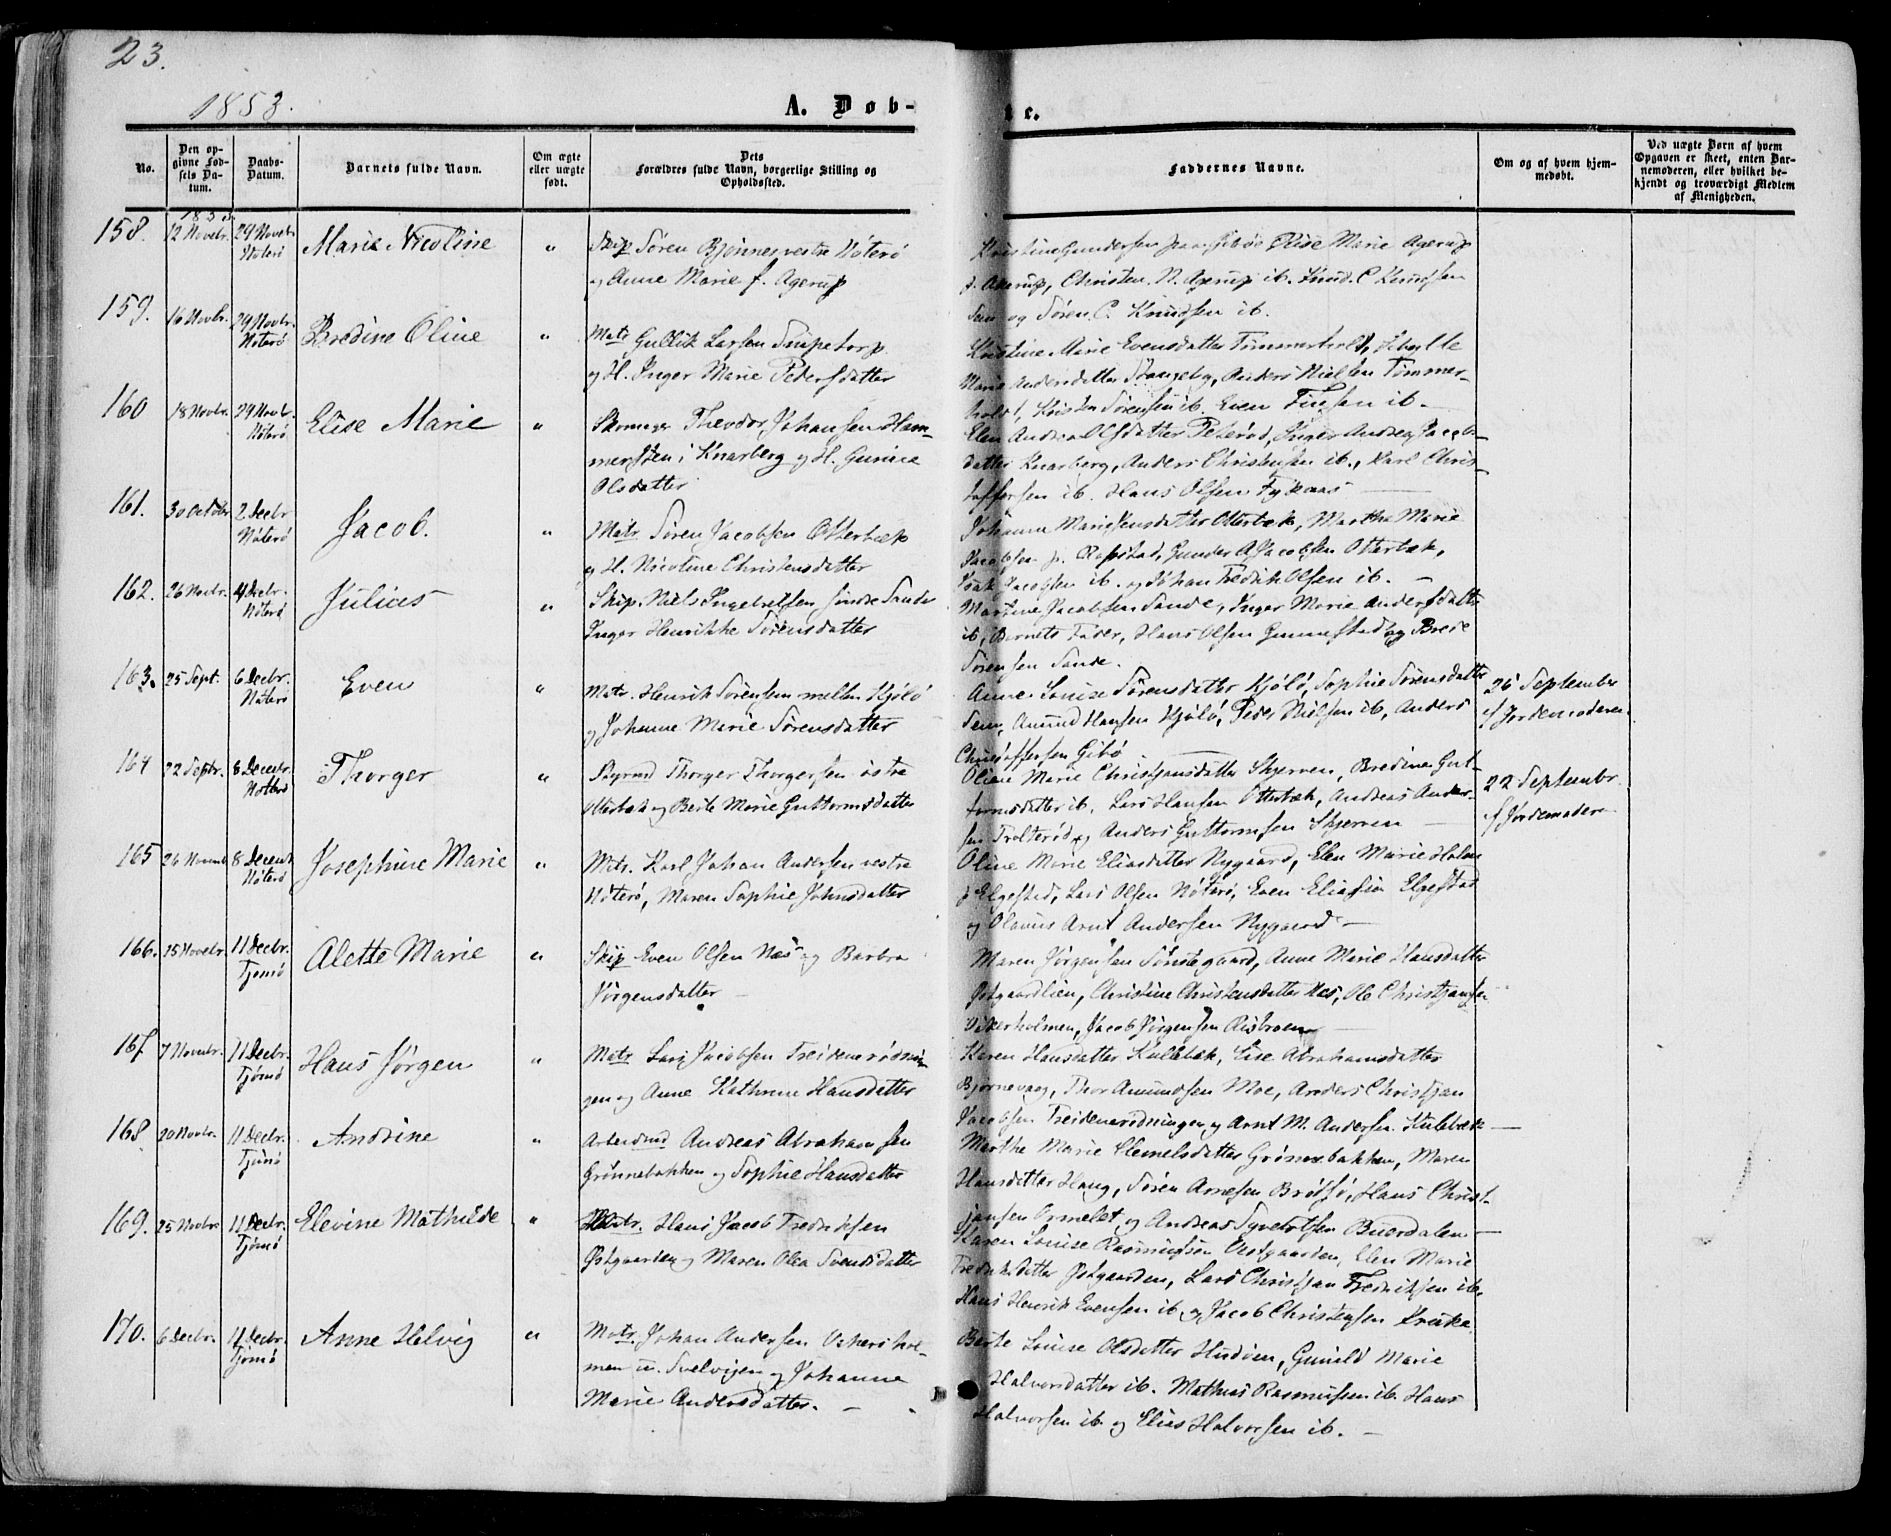 23.
1853.
A. Døb-
te.
No.
Den op-
givne Fød-
sels Da-
tum.
Daabs-
Datum.
Barnets fulde Navn.
Om ægte
eller uægte
født.
Dets
Forældres fulde Navn, borgerlige Stilling og
Opholdssted.
Faddernes Navne.
Om og af hvem hjem-
medøbt.
Ved uægte Børn af hvem
Opgaven er skeet, enten Bar-
nemoderen, eller hvilket be-
kjendt og troværdigt Medlem
af Menigheden.
1853
158. 12 Novebr. 29 Novebr. Nøterø Marie Nicoline " Skip Søren Bjønnes vestre Nøterø
og Anne Marie f. Agerup
Kristine Gundersen paa Gibøe Elise Marie Agerup
p. Agerup, Christen N. Agerup ib. Knud C Knudsen
og Søren C. Knudsen ib.
159. 16 Novbr. 29 Novbr. Nøterø Bredine Oline " Matr Gullik Larsen Snipetorp
og H. Inger Marie Pedersdatter
Kristine Marie Evensdatter Tømmerholt,
Marie Andersdatter Stangeby, Anders Nielsen Tømmer-
holt, Kristen Sørensen ib. Even Finsen ib -
160 18 Novbr. 29 Novbr. Nøterø Elise Marie " Skomager Theodor Johansen Ham-
mersten i Knarberg og H. Gunia
Olsdatter
Elen Andrea Olsdatter Peterød, Inger Andrea Jacobs-
datter Knarberg, Anders Christensen ib., Karl Chris-
toffersen ib. Hans Olsen Fykaas -
161. 30 October 2 Decbr Nøterø Jacob. " Matr. Søren Jacobsen Otterbæk
og H. Nicoline Christensdatter
Johanne Marie Jensdatter Otterbæk, Marthe Marie
Jacobsen p. Ropstad, Gunder A Jacobsen Otterbæk,
Isak Jacobsen ib. og Johan Fredrik Olsen ib. -
162. 26 Novbr. 4 Decbr. Nøterø Julius " Skip. Niels Ingebretsen søndre Sande
Inger Henrikke Sørensdatter
Martine Jacobsen Sande, Inger Marie Andersdatter
ib, Barnets Fader, Hans Olsen Gunnestad og Brede
Sørensen Sande.
163. 25 Sept. 6 Decbr. Nøterø Even " Matr. Henrik Sørensen mellem Kjølø
og Johanne Marie Sørensdatter
Anne Louise Sørensdatter Kjølø, Sophie Sørensdatter
Sem, Amund Hansen Kjølø, Peder Nielsen ib, Anders
Christoffersen Gibø
25 September
af Jordemoderen
164 22 Septbr. 8 Decebr. Nøtterø Thorger " Styrmd Thorger Thorgersen østre
Otterbæk og Berte Marie Guttormsdatter
Oline Marie Christjansdatter Skjerven, Bredine Gut-
tormsdatter ib. Lars Hansen Otterbæk, Andreas Ander-
sen Trolterød og Anders Guttormsen Skjerven -
22 Septembr.
af Jordemoderen
165 26 Novemb. 8 Decemb Nøterø Josephine Marie " Matr. Karl Johan Andersen vestre
Nøterø, Maren Sophie Johnsdatter
Oline Marie Eliasdatter Nygaard, Elen Marie Holm
p Elgestad, Lars Olsen Nøterø, Even Eliassen Elgestad
og Olaves Arnt Andersen Nygaard -
166. 15 Novebr. 11 Decbr. Tjømø Alette Marie " Skip Even Olsen Næs og Barbra
Jørgensdatter -
Maren Jørgensen Sønstegaard, Anne Marie Hansdatter
Østgaardlien, Christine Christensdatter Næs, Ole Christjansen
Vikerholmen, Jacob Jørgensen Risbroen -
167 7 Novebr. 11 Decbr. Tjømø Hans Jørgen " Matr Lars Jacobsen Treidenerødnin-
gen og Anne Kathrine Hansdatter
Karen Hansdatter Kulebæk, Else Abrahamsdatter
Bjørnevaag, Thor Amundsen Moe, Anders Christjan
Jacobsen Treidenerødningen og Arnt M. Andersen Kulebæk -
168 20 Novbr. 11 Decbr. Tjømø Andrine " Arbeidsmd Andreas Abrahamsen
Grønnebakken og Sophie Hansdatter
Marthe Marie Clemetsdatter Grønnebakken, Maren
Hansdatter Haug, Søren Arnesen Brøtsø, Hans Christ-
jansen Ormelet og Andreas Syvertsen Buerdalen -
169. 25 Novbr 11 Decbr. Tjømø Elevine Mathilde " Matr. Hans Jacob Fredriksen
Østgaarden og Maren Olea Svendsdatter
Karen Louise Rasmussen Vestgaarden, Elen Marie
Fredriksdatter Østgaarden, Lars Christjan Fredriksen ib,
Hans Henrik Evensen ib og Jacob Christensen Kruke.
170. 6 Decbr. 11 Decbr. Tjømø Anne Helvig " Matr. Johan Andersen Vikershol-
men u. Svelvigen og Johanne
Marie Andersdatter. -
Berte Louise Olsdatter Hudøen, Gunild Marie
Halvorsdatter ib. Mathias Rasmussen ib. Hans
Halvorsen ib. og Elias Halvorsen ib. -